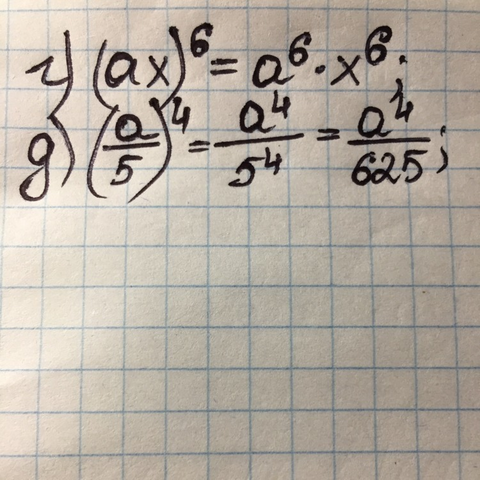 г) (ax)⁶ = a⁶ · x⁶;
д) (a/5)⁴ = a⁴/5⁴ = a⁴/625;